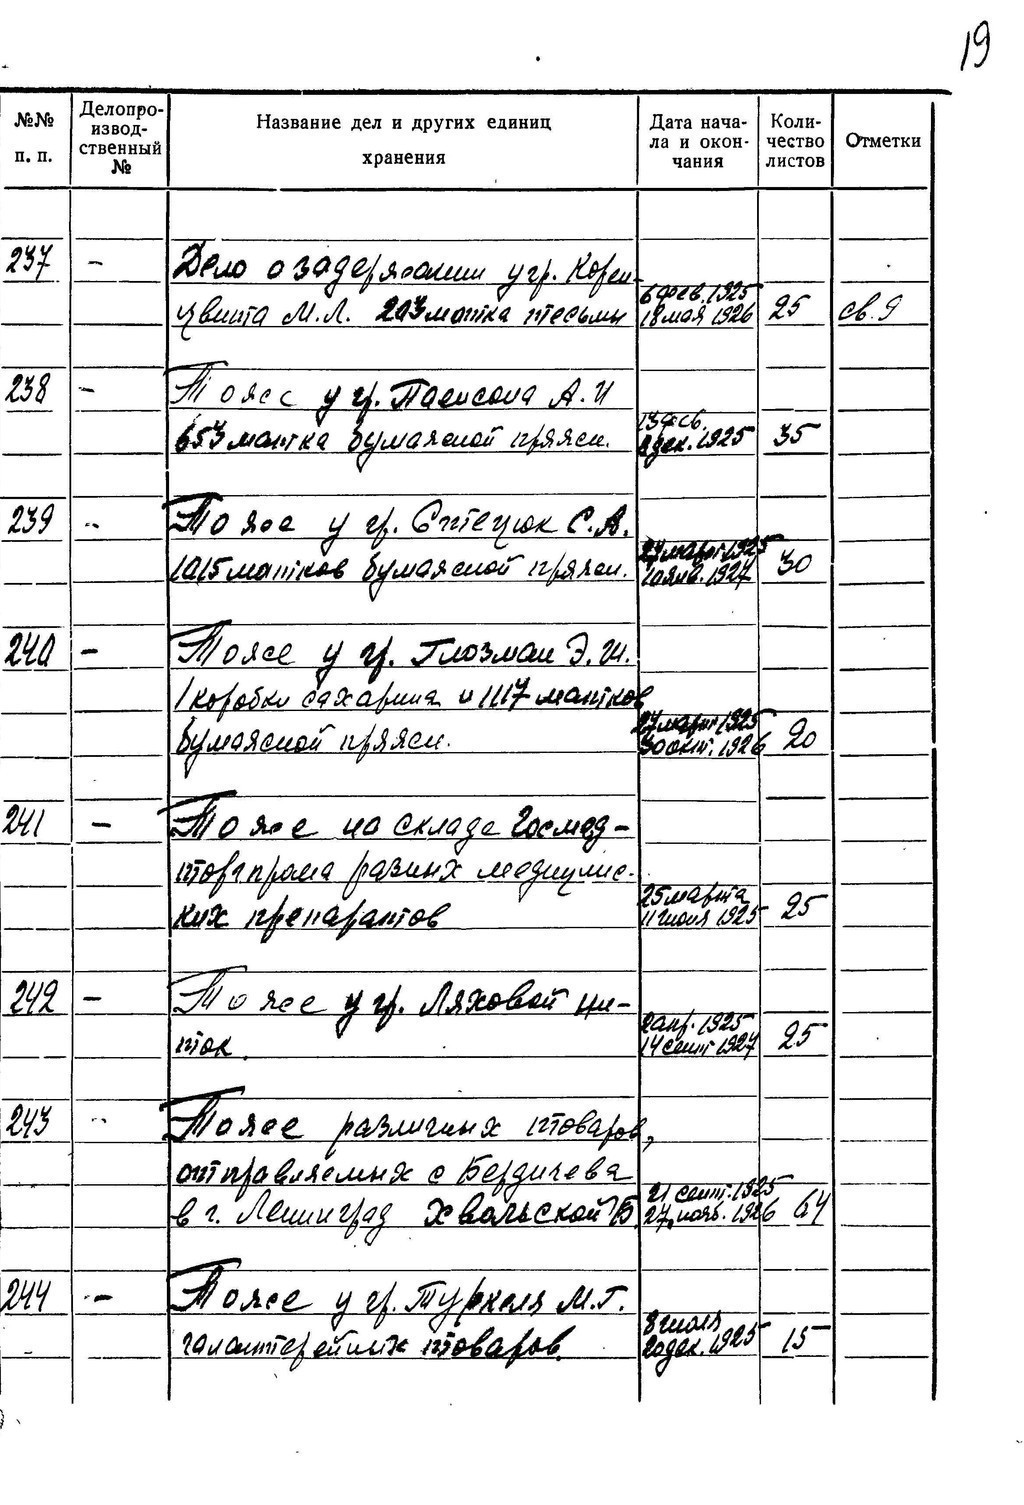 19
№№ п. п.
Делопро-
извод-
ственный
№
Название дел и других единиц
хранения
Дата нача-
ла и окон-
чания
Коли-
чество
листов
Отметки
237 – Дело о задержании у гр. Корен-
цвита М.Л. 203 мотка тесьмы 6 фев. 1925 18 мая 1926 25 св. 9
238 – То же у гр. А. И
653 мотка бумажной пряжи. 13 фев. 8 дек. 1925 35
239 – То же у гр. Стецюк С. А.
1015 мотков бумажной пряжи. 27 март 1925 10 янв. 1927 30
240 – То же у гр. Глозман Э. Ш.
1 коробки сахарина и 1117 мотков
бумажной пряжи. 27 март 1925 30 окт. 1926 20
241 – То же на складе Госмед-
торгпрома разных медицинс-
ких препаратов 25 марта 11 июля 1925 25
242 – То же у гр. Ляховой ни-
ток. 2 апр. 1925 14 сент 1927 25
243 – То же различных товаров,
отправляемых с Бердичева
в г. Ленинград Хвальской Б. 21 сент. 1925 27 нояб. 1926 64
244 – То же у гр. Туркеля М. Г.
галантерейных товаров. 8 июля 20 дек. 1925 15